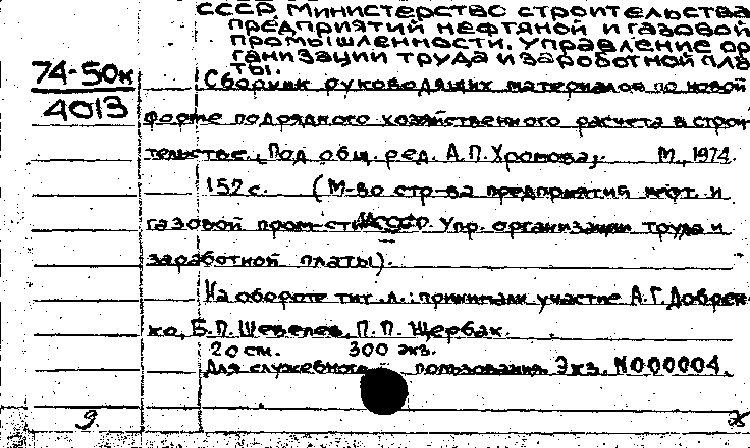 СССР Министерство строительства
предприятий нефтяной и газовой
промышленности. Управление ор
ганизации труда и заработной пла
ты.
74-50к
4013
Сборник руководящих материалов по новой
форме подрядного хозяйственного расчета в строи
тельстве. Под общ. ред. А.П.Хромова; М., 1974.
157 с. (М-во стр-ва предприятий нефт. и
газовой пром-сти СССР. Упр. организации труда и
заработной платы).
На обороте тит. л.: принимали участие А.Г.Добрен
ко, Б.П.Шевелев, П.П. Щербак.
20 см. 300 экз.
Для служебного пользования. Экз. N000004.
9 ж